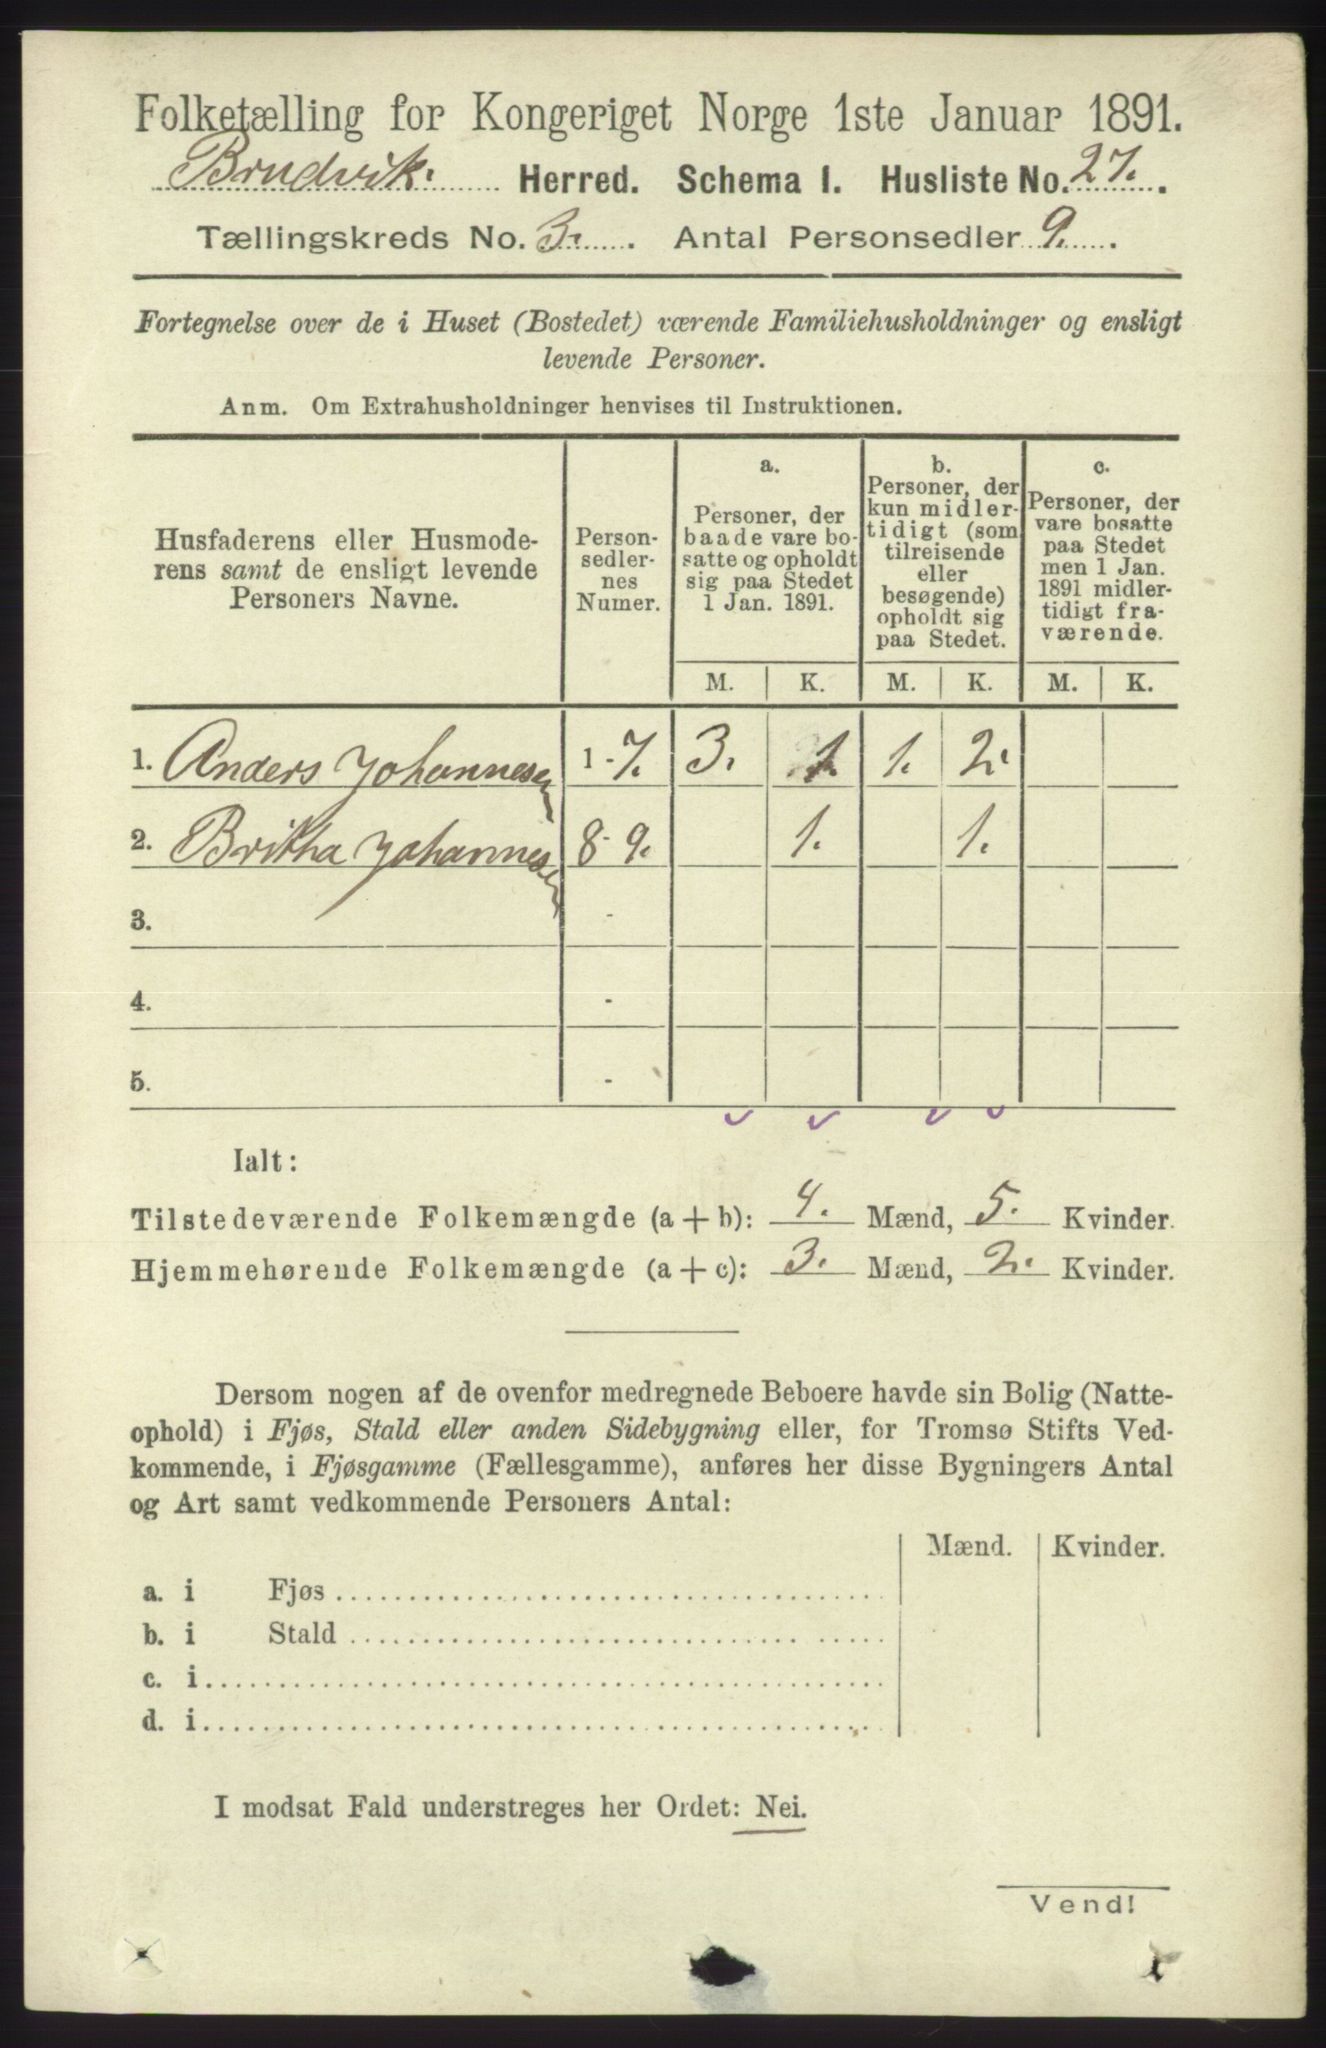 Folketælling for Kongeriget Norge 1ste Januar 1891.
Brudvik. Herred. Schema I. Husliste No. 27.
Tællingskreds No. 3. Antal Personsedler 9.
Fortegnelse over de i Huset (Bostedet) værende Familiehusholdninger og ensligt
levende Personer.
Anm. Om Extrahusholdninger henvises til Instruktionen.
Husfaderens eller Husmode-
rens samt de ensligt levende
Personers Navne.
Person-
sedler-
nes
Numer.
a.
Personer, der
baade vare bo-
satte og opholdt
sig paa Stedet
1 Jan. 1891.
b.
Personer, der
kun midler-
tidigt (som
tilreisende
eller
besøgende)
opholdt sig
paa Stedet.
c.
Personer, der
vare bosatte
paa Stedet
men 1 Jan.
1891 midler-
tidigt fra-
værende.
M. K. M. K. M. K.
1. Anders Johannesen 1-7. 3. 1. 1. 2.
2. Britha Johannesen 8-9. 1. 1.
3. -
4. -
5. -
Ialt:
Tilstedeværende Folkemængde (a + b): 4. Mænd, 5. Kvinder.
Hjemmehørende Folkemængde (a + c): 3. Mænd, 2. Kvinder.
Dersom nogen af de ovenfor medregnede Beboere havde sin Bolig (Natte-
ophold) i Fjøs, Stald eller anden Sidebygning eller, for Tromsø Stifts Ved-
kommende, i Fjøsgamme (Fællesgamme), anføres her disse Bygningers Antal
og Art samt vedkommende Personers Antal:
Mænd. Kvinder.
a. i Fjøs
b. i Stald
c. i
d. i
I modsat Fald understreges her Ordet: Nei.
Vend!